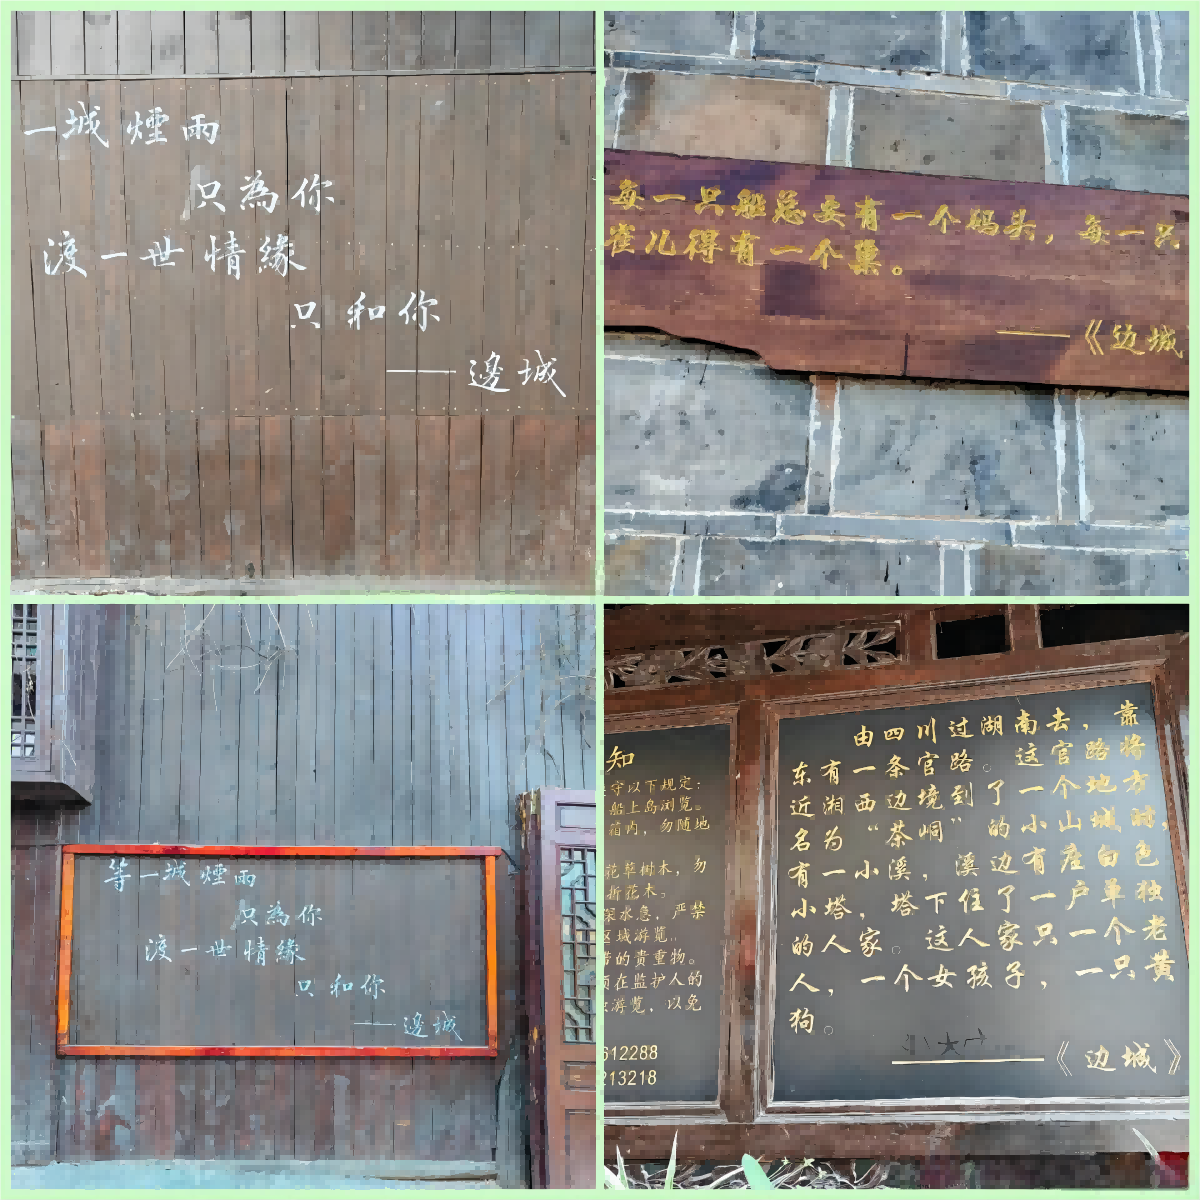 一城煙雨
只為你
渡一世情緣
只和你
——邊城
每一只船总要有一个码头，每一只
雀儿得有一个巢。
——《边城
等一城煙雨
只為你
渡一世情緣
只和你
——邊城
知
守以下规定：
船上岛浏览。
箱内，勿随地
花草树木，勿
折花木。
深水急，严禁
区域游览..
带的贵重物。
须在监护人的
游览，以免
612288
213218
由四川过湖南去，靠
东有一条官路。这官路将
近湘西边境到了一个地方
名为“茶峒”的小山城时，
有一小溪，溪边有座白色
小塔，塔下住了一户单独
的人家。这人家只一个老
人，一个女孩子，一只黄
狗。
——《边城》